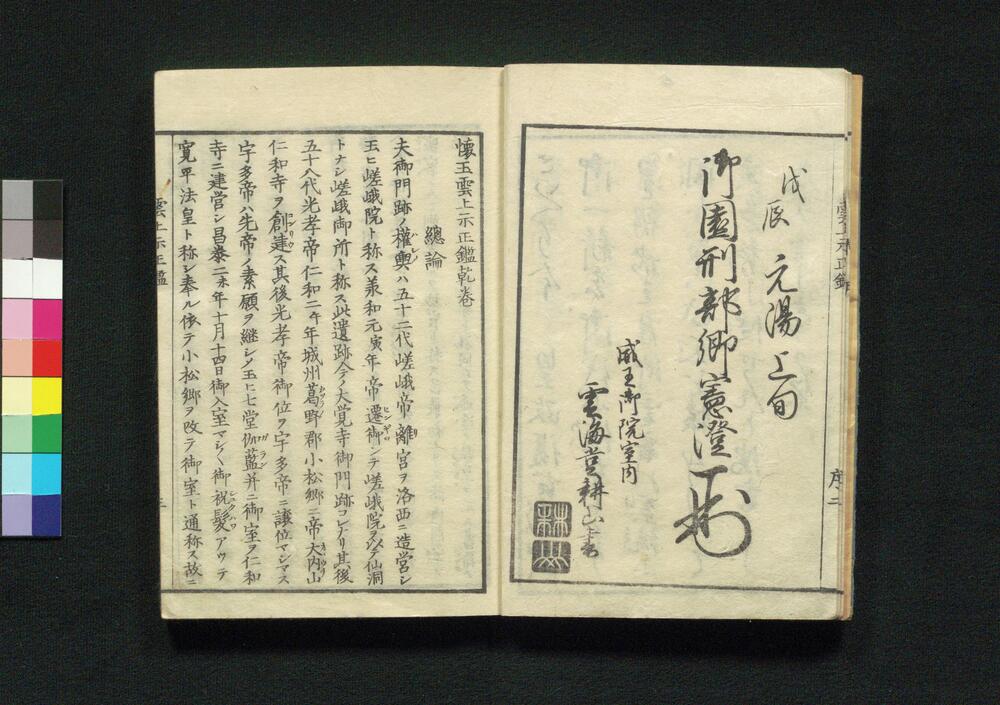 戊辰 元陽上旬
御園刑部卿憲澄
威王御院室内
雲海堂耕山書
序二
懐玉雲上示正鑑乾巻
總論
夫御門跡ノ權輿ハ五十二代嵯峨帝離宮ヲ洛西ニ造営シ
玉ヒ嵯峨院ト称ス承和元寅年帝遷御シテ嵯峨院ヲ以テ仙洞
トナシ嵯峨御所ト称ス此遺跡今ノ大覚寺御門跡コレナリ其後
五十八代光孝帝仁和二午年城州葛野郡小松郷ニ帝大内山
仁和寺ヲ創建ス其後光孝帝御位ヲ宇多帝ニ譲位マシマス
宇多帝ハ先帝ノ素願ヲ継シメ玉ヒ七堂伽藍并ニ御室ヲ仁和
寺ニ建営シ昌泰二未年十月十四日御入室マシ〱御祝髪アッテ
寛平法皇ト称シ奉ル依テ小松郷ヲ改テ御室ト通称ス故ニ
雲上示正鑑